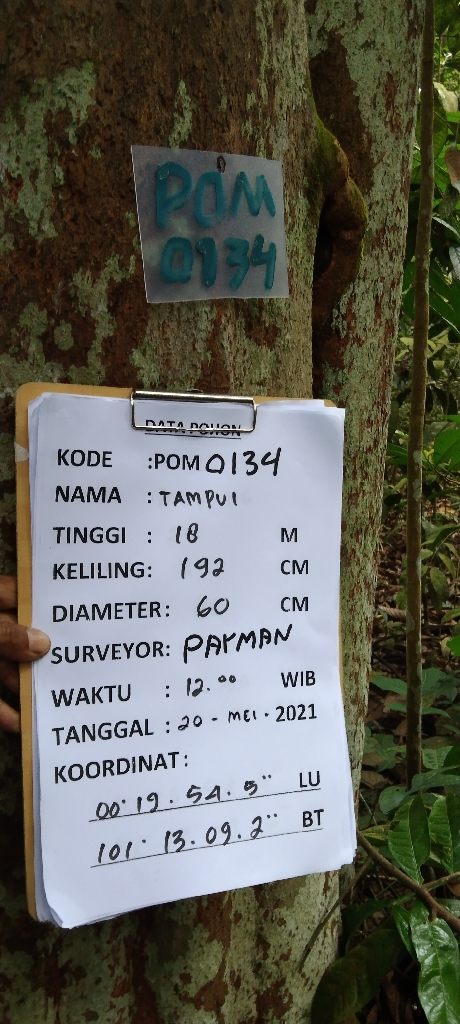 POM
0134
DATA POHON
KODE :POM 0134
NAMA : TAMPUI
TINGGI : 18 M
KELILING: 192 CM
DIAMETER: 60 CM
SURVEYOR: PAYMAN
WAKTU : 12.00 WIB
TANGGAL : 20 - MEI - 2021
KOORDINAT:
00° 19. 54. 5" LU
101° 13. 09. 2" BT